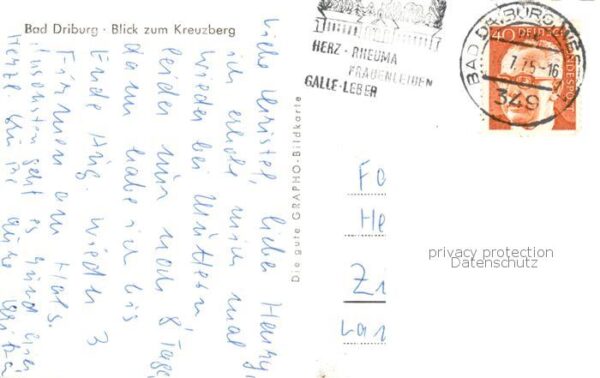 Bad Driburg · Blick zum Kreuzberg
Liebe Christel, lieber Henry,
ich erhole mich mal
wieder bei Muttern,
leider nur noch 8 Tage,
dann habe ich bis
Ende Aug. wieder 3
am Hals.
geht es
Die gute GRAPHO-Bildkarte
HERZ · RHEUMA
FRAUENLEIDEN
GALLE-LEBER
BAD DRIBURG
7.75-16
349
40 DEUTSCHE BUNDESPOST
Fa
He
Zi
Lan
privacy protection
Datenschutz